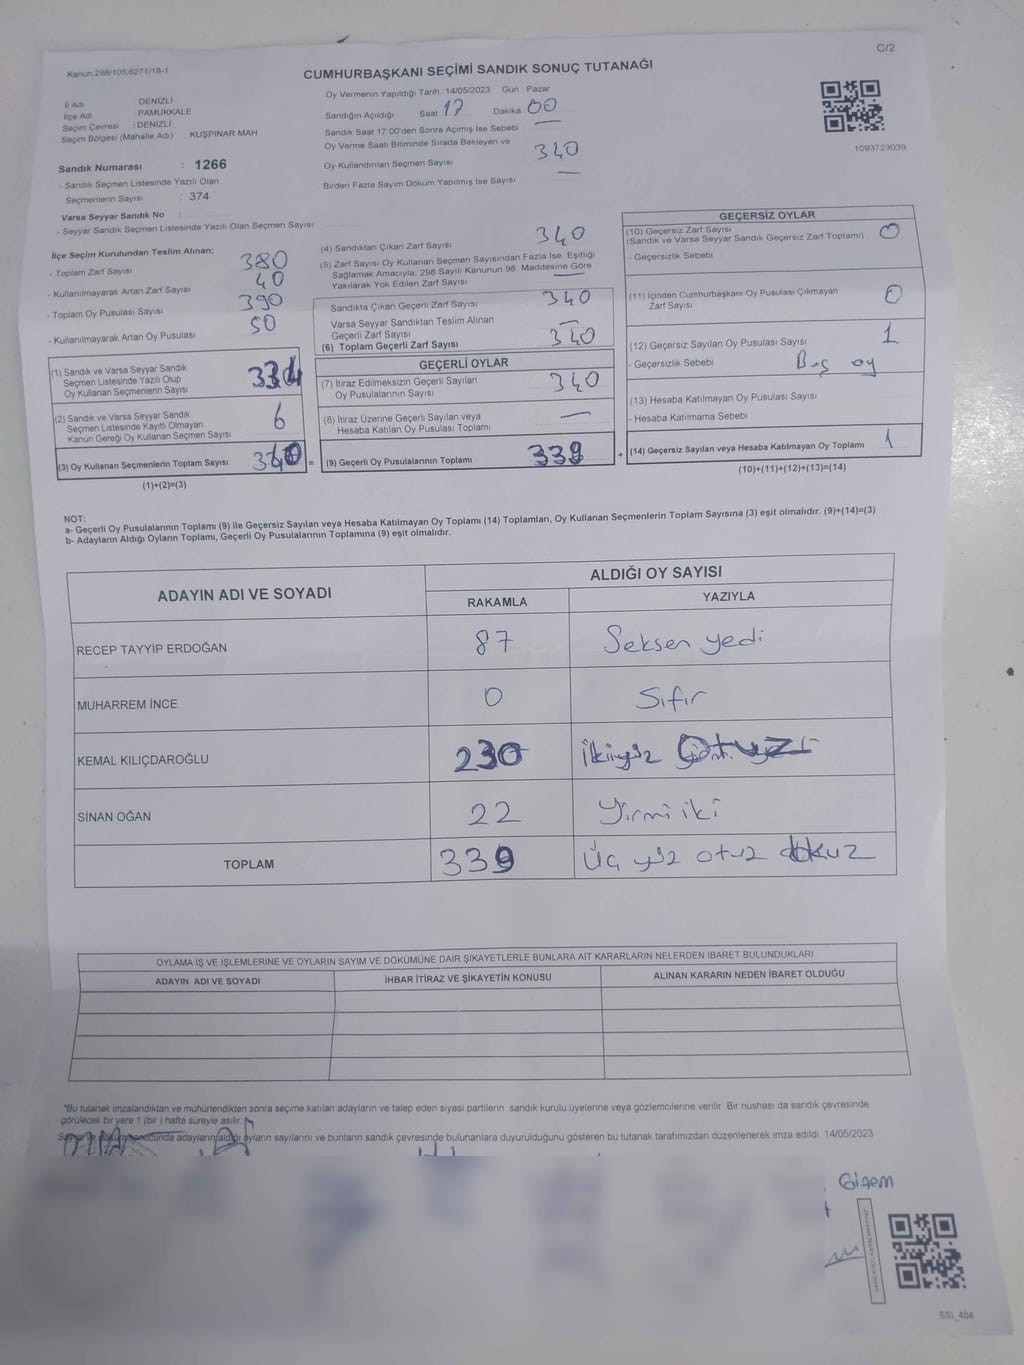 C/2
Kanun:298/105;6271/18-1
CUMHURBAŞKANI SEÇİMİ SANDIK SONUÇ TUTANAĞI
İl Adı DENİZLİ
İlçe Adı PAMUKKALE
Seçim Çevresi : DENİZLİ
Seçim Bölgesi (Mahalle Adı) : KUŞPINAR MAH
Sandık Numarası : 1266
- Sandık Seçmen Listesinde Yazılı Olan
Seçmenlerin Sayısı : 374
Varsa Seyyar Sandık No :
- Seyyar Sandık Seçmen Listesinde Yazılı Olan Seçmen Sayısı
Oy Vermenin Yapıldığı Tarih :14/05/2023 Gün Pazar
Sandığın Açıldığı Saat 17 Dakika 00
Sandık Saat 17 00'den Sonra Açımış İse Sebebi —
Oy Verme Saati Bitiminde Sırada Bekleyen ve
Oy Kullandırılan Seçmen Sayısı 340
Birden Fazla Sayım Döküm Yapılmış İse Sayısı —
1093723039
İlçe Seçim Kurulundan Teslim Alınan;
- Toplam Zarf Sayısı 380
- Kullanılmayarak Artan Zarf Sayısı 40
- Toplam Oy Pusulası Sayısı 390
- Kullanılmayarak Artan Oy Pusulası 50
(1) Sandık ve Varsa Seyyar Sandık
Seçmen Listesinde Yazılı Olup
Oy Kullanan Seçmenlerin Sayısı 334
(2) Sandık ve Varsa Seyyar Sandık
Seçmen Listesinde Kayıtlı Olmayan
Kanun Gereği Oy Kullanan Seçmen Sayısı 6
(3) Oy Kullanan Seçmenlerin Toplam Sayısı 340 =
(1)+(2)=(3)
(4) Sandıktan Çıkan Zarf Sayısı 340
(5) Zarf Sayısı Oy Kullanan Seçmen Sayısından Fazla İse, Eşitliği
Sağlamak Amacıyla; 298 Sayılı Kanunun 98. Maddesine Göre
Yakılarak Yok Edilen Zarf Sayısı —
Sandıkta Çıkan Geçerli Zarf Sayısı 340
Varsa Seyyar Sandıktan Teslim Alınan
Geçerli Zarf Sayısı —
(6) Toplam Geçerli Zarf Sayısı 340
GEÇERLİ OYLAR
(7) İtiraz Edilmeksizin Geçerli Sayılan
Oy Pusulalarının Sayısı 340
(8) İtiraz Üzerine Geçerli Sayılan veya
Hesaba Katılan Oy Pusulası Toplamı —
(9) Geçerli Oy Pusulalarının Toplamı 339 +
GEÇERSİZ OYLAR
(10) Geçersiz Zarf Sayısı 0
(Sandık ve Varsa Seyyar Sandık Geçersiz Zarf Toplamı)
- Geçersizlik Sebebi
(11) İçinden Cumhurbaşkanı Oy Pusulası Çıkmayan
Zarf Sayısı 0
(12) Geçersiz Sayılan Oy Pusulası Sayısı 1
- Geçersizlik Sebebi Boş oy
(13) Hesaba Katılmayan Oy Pusulası Sayısı
- Hesaba Katılmama Sebebi
(14) Geçersiz Sayılan veya Hesaba Katılmayan Oy Toplamı 1
(10)+(11)+(12)+(13)=(14)
NOT:
a- Geçerli Oy Pusulalarının Toplamı (9) ile Geçersiz Sayılan veya Hesaba Katılmayan Oy Toplamı (14) Toplamları, Oy Kullanan Seçmenlerin Toplam Sayısına (3) eşit olmalıdır. (9)+(14)=(3)
b- Adayların Aldığı Oyların Toplamı, Geçerli Oy Pusulalarının Toplamına (9) eşit olmalıdır.
ADAYIN ADI VE SOYADI ALDIĞI OY SAYISI
RAKAMLA YAZIYLA
RECEP TAYYİP ERDOĞAN 87 Seksen yedi
MUHARREM İNCE 0 Sıfır
KEMAL KILIÇDAROĞLU 230 İkiyüz Otuz
SİNAN OĞAN 22 Yirmi iki
TOPLAM 339 Üç yüz otuz dokuz
OYLAMA İŞ VE İŞLEMLERİNE VE OYLARIN SAYIM VE DÖKÜMÜNE DAİR ŞİKAYETLERLE BUNLARA AİT KARARLARIN NELERDEN İBARET BULUNDUKLARI
ADAYIN ADI VE SOYADI İHBAR İTİRAZ VE ŞİKAYETİN KONUSU ALINAN KARARIN NEDEN İBARET OLDUĞU
"Bu tutanak imzalandıktan ve mühürlendikten sonra seçime katılan adayların ve talep eden siyasi partilerin sandık kurulu üyelerine veya gözlemcilerine verilir. Bir nüshası da sandık çevresinde
görülecek bir yere 1 (bir) hafta süreyle asılır.
Sayım ve döküm sonucunda adayların aldığı oyların sayılarını ve bunların sandık çevresinde bulunanlara duyurulduğunu gösteren bu tutanak tarafımızdan düzenlenerek imza edildi. 14/05/2023
Gizem
SSI_404